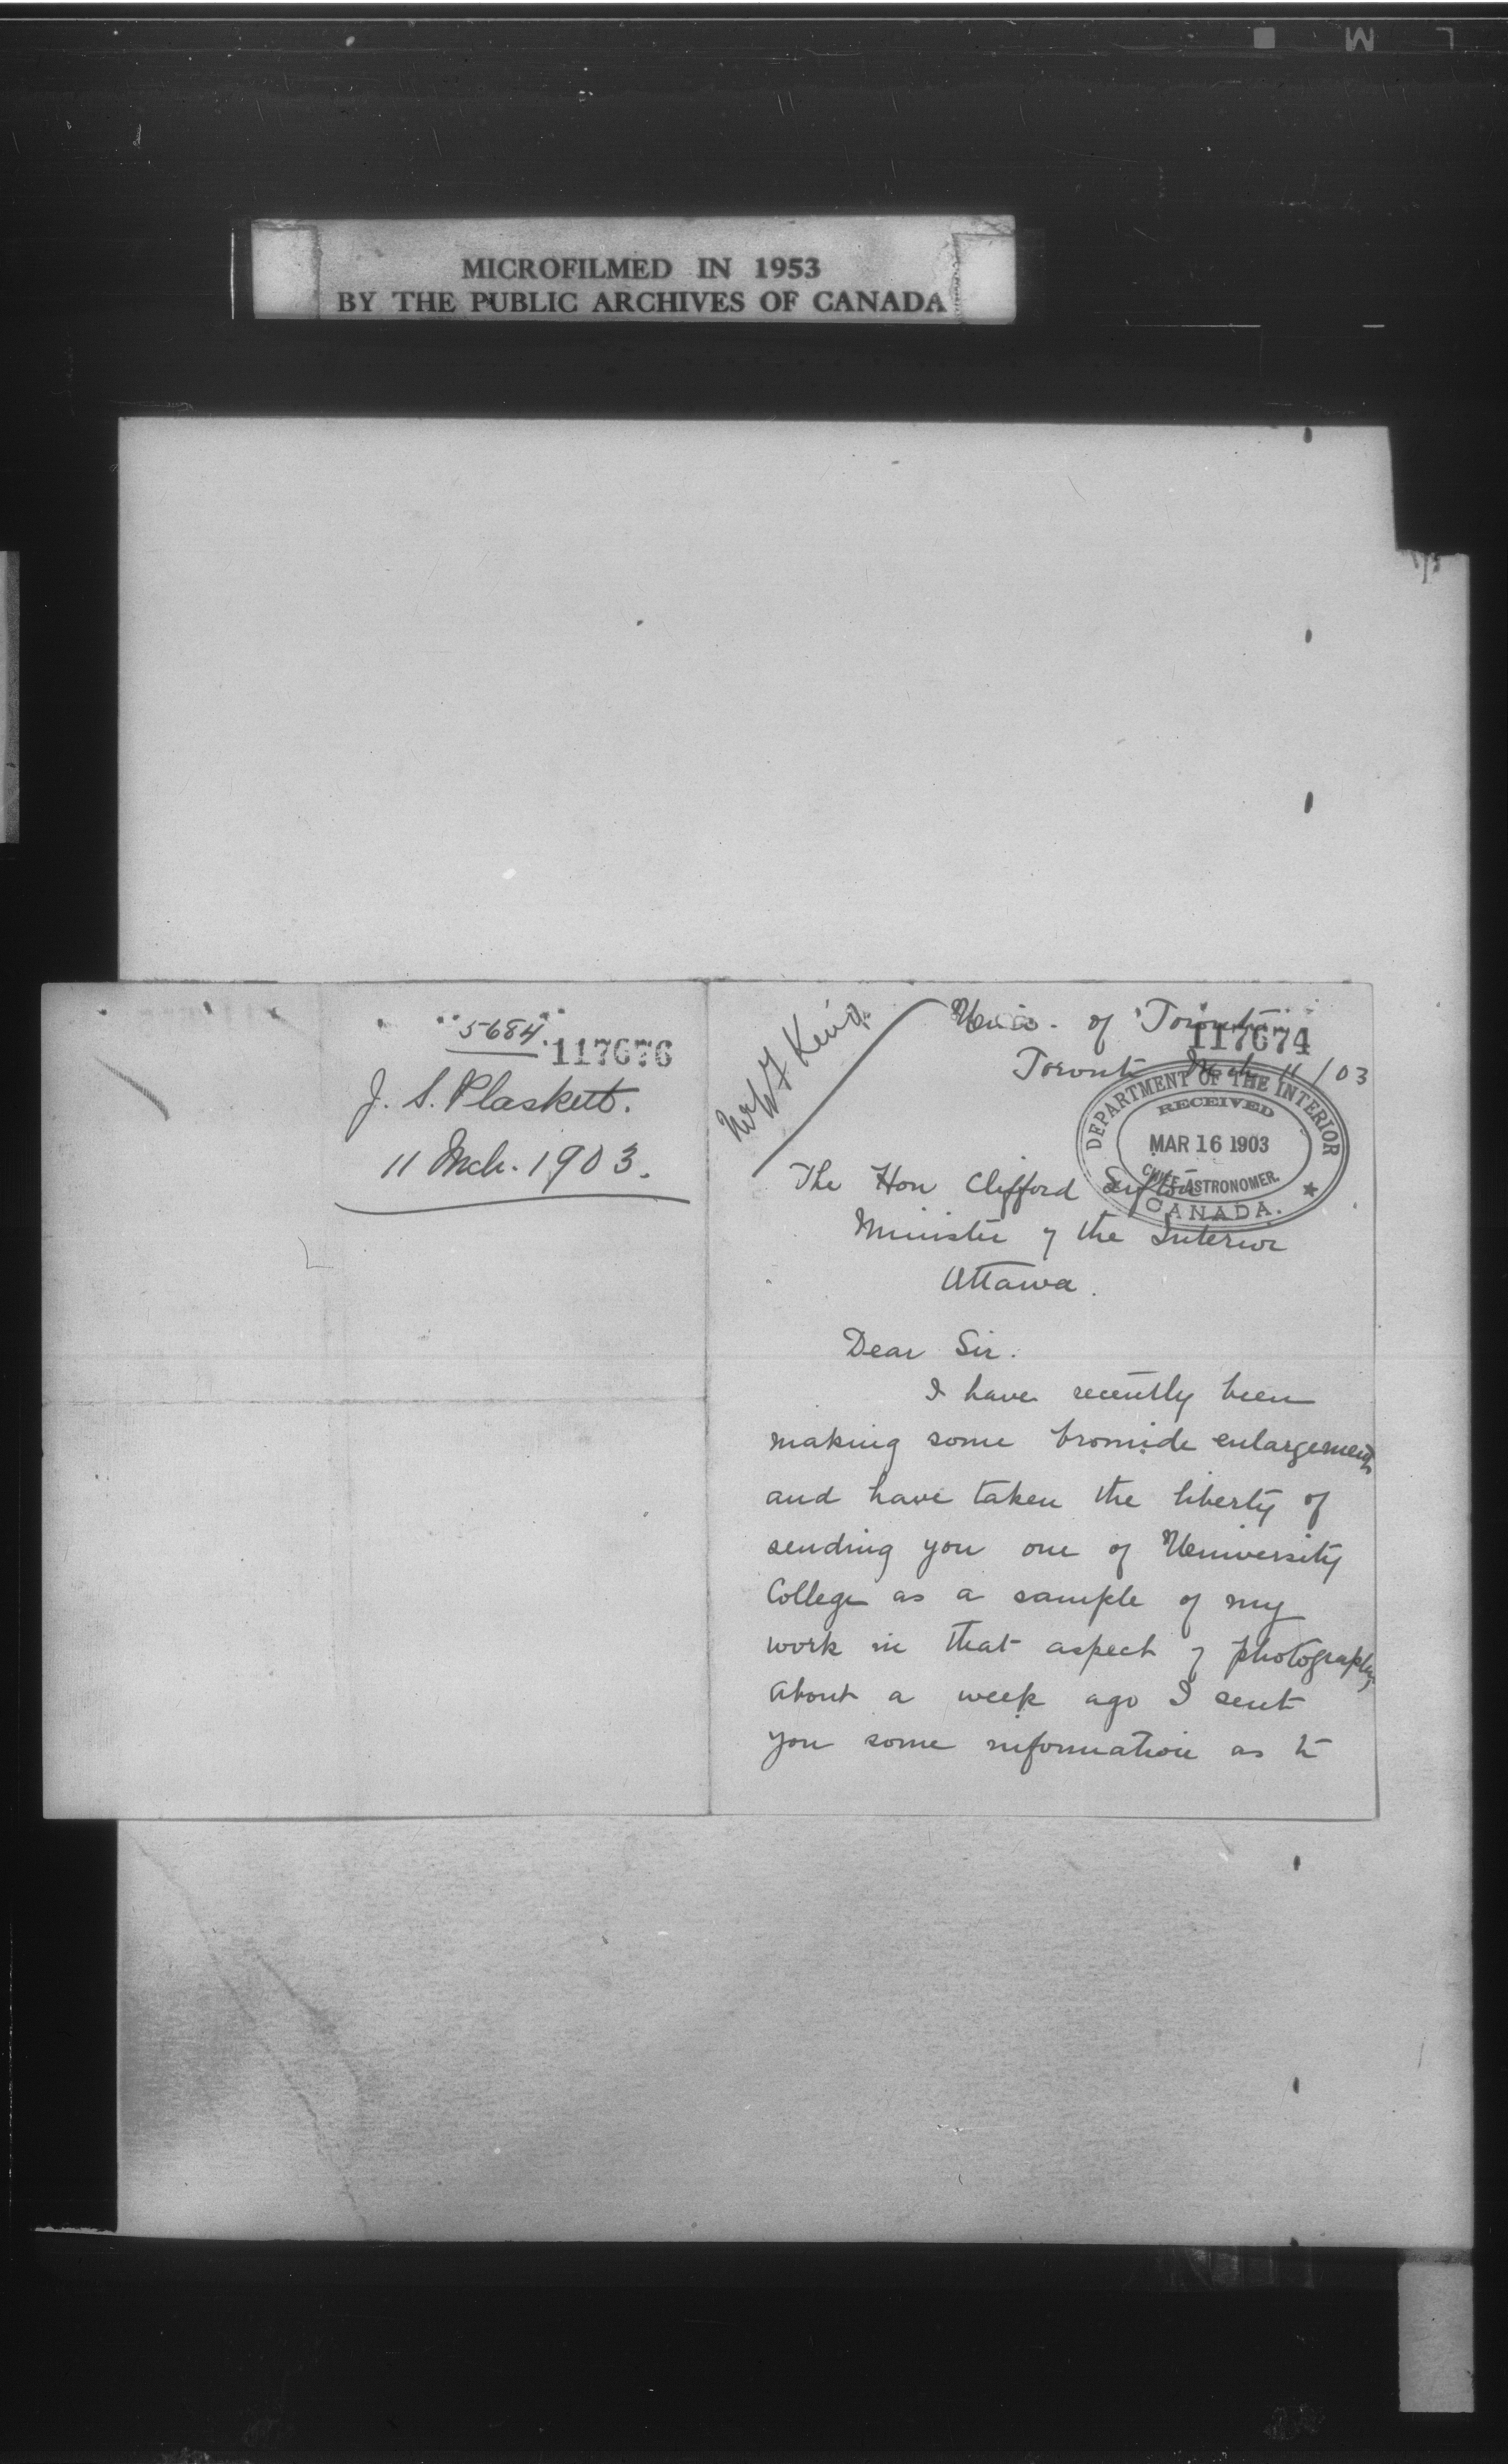 MICROFILMED IN 1953
BY THE PUBLIC ARCHIVES OF CANADA
5684
117676
J. S. Plaskett.
11 Mch. 1903.
Mr W F King
Univ. of Toronto
117674
Toronto Mch 11/03
DEPARTMENT OF THE INTERIOR
RECEIVED
MAR 16 1903
CHIEF ASTRONOMER.
CANADA.
The Hon Clifford Sifton
Minister of the Interior
Ottawa.
Dear Sir.
I have recently been
making some bromide enlargements
and have taken the liberty of
sending you one of University
College as a sample of my
work in that aspect of photography
About a week ago I sent
you some information as to